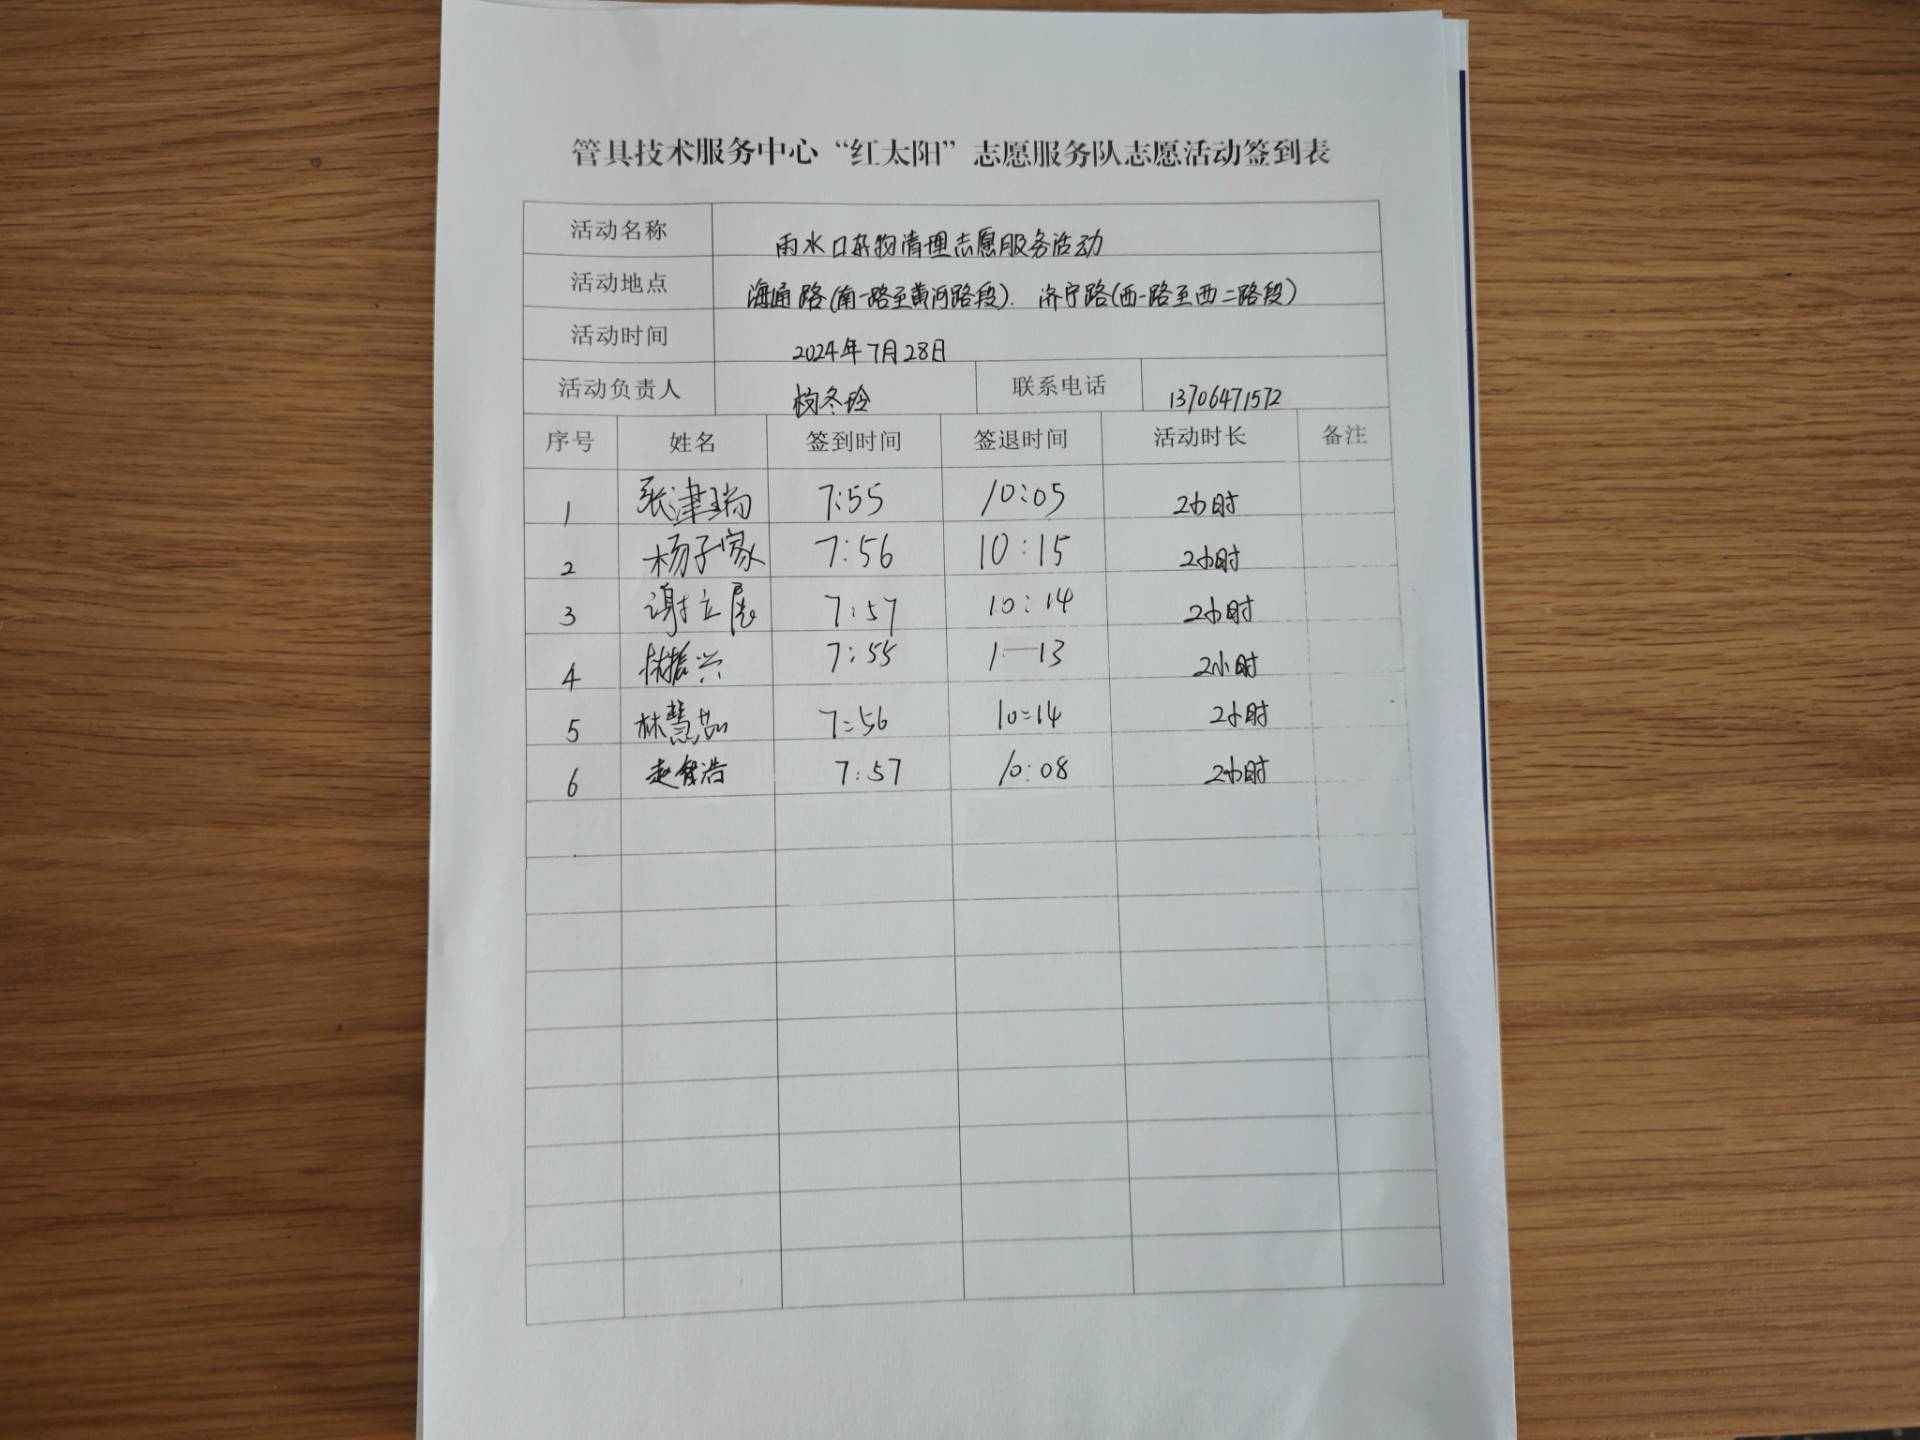 管具技术服务中心“红太阳”志愿服务队志愿活动签到表
活动名称 雨水口杂物清理志愿服务活动
活动地点 海通路(南一路至黄河路段). 济宁路(西一路至西二路段)
活动时间 2024年7月28日
活动负责人 联系电话 13706471572
序号 姓名 签到时间 签退时间 活动时长 备注
1 张津瑞 7:55 10:05 2小时
2 杨子家 7:56 10:15 2小时
3 谢立展 7:57 10:14 2小时
4 林振兴 7:55 2小时
5 林慧茹 7:56 10:14 2小时
6 赵俊浩 7:57 10:08 2小时